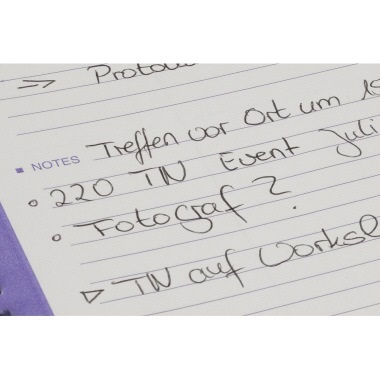 => Proto
NOTES Treffen vor Ort um
220 TN Event Juli
Fotograf ?
▷ TN auf